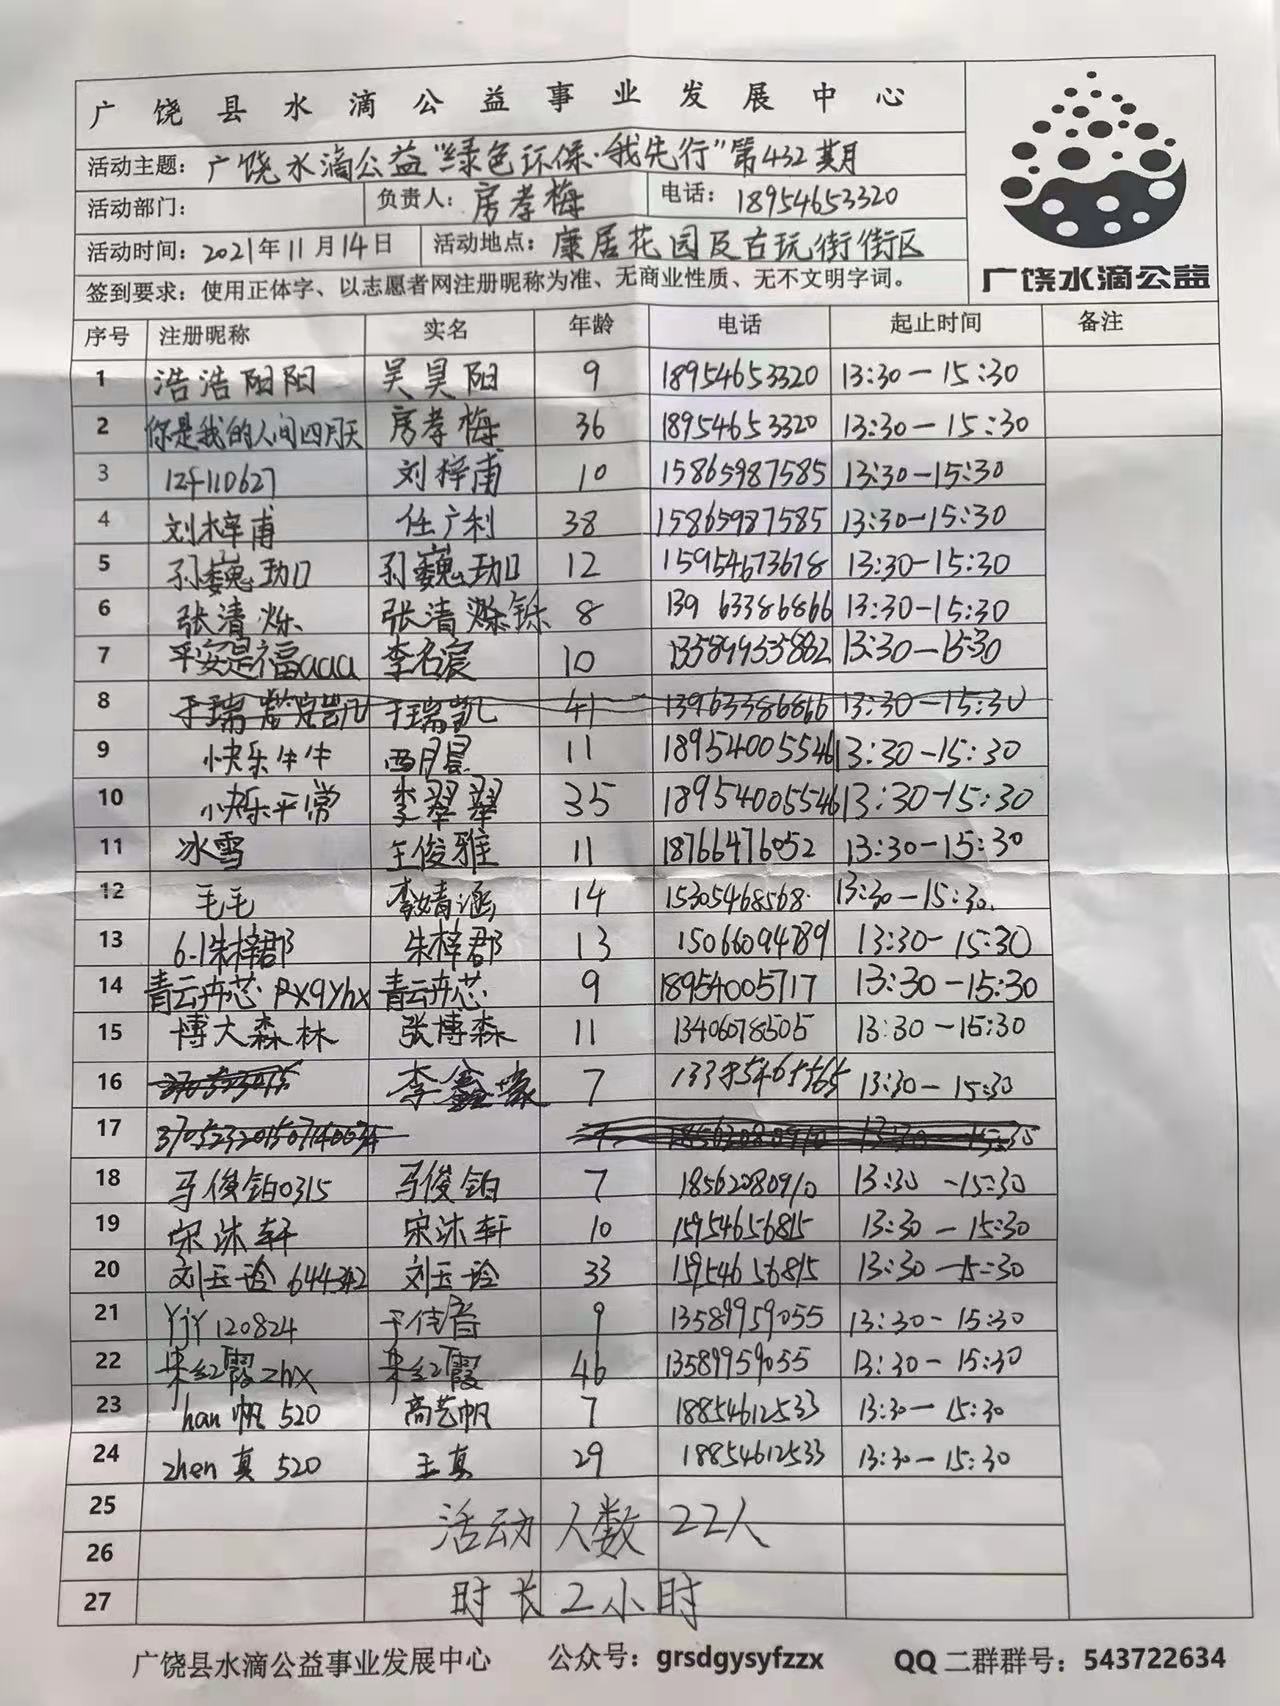 广饶县水滴公益事业发展中心
活动主题：广饶水滴公益"绿色环保·我先行"第432期
活动部门： 负责人：房孝梅 电话：18954653320
活动时间：2021年11月14日 活动地点：康居花园及古玩街街区
签到要求：使用正体字、以志愿者网注册昵称为准、无商业性质、无不文明字词。
广饶水滴公益
序号 注册昵称 实名 年龄 电话 起止时间 备注
1 浩浩阳阳 吴昊阳 9 18954653320 13:30-15:30
2 你是我的人间四月天 房孝梅 36 18954653320 13:30-15:30
3 刘梓甫 10 15865987585 13:30-15:30
4 刘梓甫 任广利 38 15865987585 13:30-15:30
5 孙巍 孙巍 12 15954673678 13:30-15:30
6 张清烁 张清烁 8 139 63386866 13:30-15:30
7 平安是福aaa 李名宸 10 13:30-15:30
8 于瑞凯 41 13963386866 13:30-15:30
9 小快乐牛牛 11 18954005546 13:30-15:30
10 小快乐平常 李翠翠 35 18954005546 13:30-15:30
11 冰雪 王俊雅 11 18766476052 13:30-15:30
12 毛毛 李婧涵 14 15305468568 13:30-15:30
13 6-1朱梓郡 朱梓郡 13 15066094789 13:30-15:30
14 青云卉芯 青云卉芯 9 18954005717 13:30-15:30
15 博大森林 张博森 11 13406078505 13:30-15:30
16 李鑫 7 13:30-15:30
17
18 马俊铂0315 马俊铂 7 18562080910 13:30-15:30
19 宋沐轩 宋沐轩 10 15954656815 13:30-15:30
20 刘玉玲 刘玉玲 33 15954656815 13:30-15:30
21 YjY120824 于佳音 9 13589959055 13:30-15:30
22 朱红霞zhx 朱红霞 46 13589959055 13:30-15:30
23 han帆520 商艺帆 7 18854612533 13:30-15:30
24 zhen真520 王真 29 18854612533 13:30-15:30
25 活动人数22人
26
27 时长2小时
广饶县水滴公益事业发展中心 公众号：grsdgysyfzzx QQ二群群号：543722634